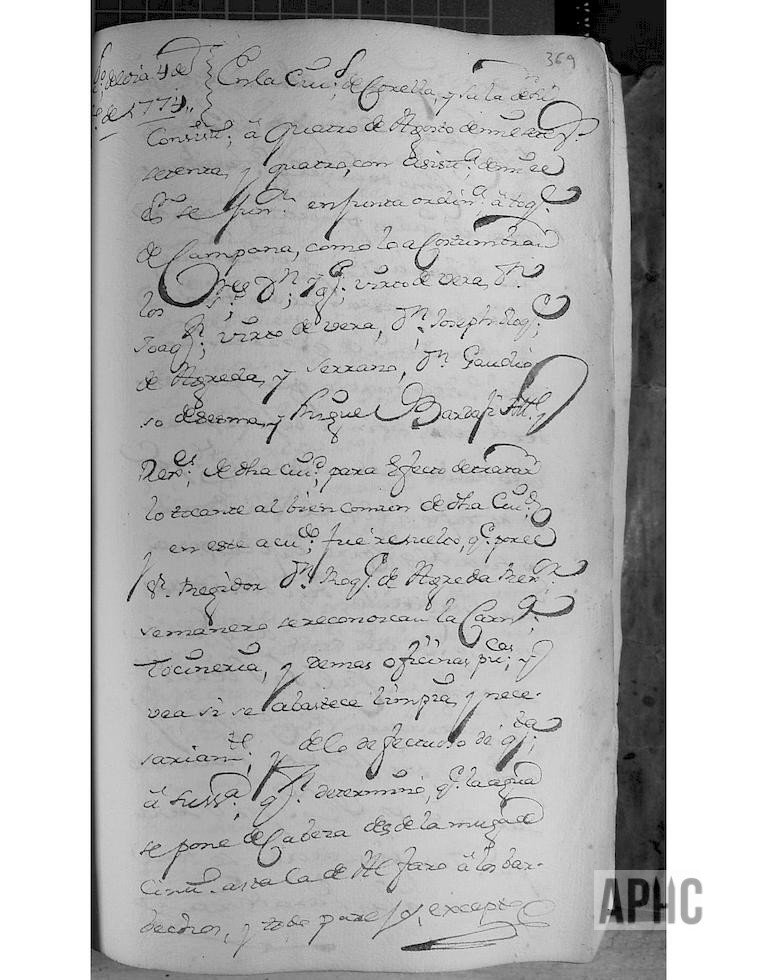 369
del dia 4 de
de 1774,,
En la Ciu.ᵈ de Corella, y sala de su
Consist.º; â quatro de Agosto de mil settez.ˢ
setenta, y quatro, con asist.ª; de mi el
ess.ⁿᵒ se junt.ⁿ en junta ordin.ª â toq.ᵉ
de Campana, como lo aCostumbran
los S.ʳᵉˢ D.ⁿ; Jph; virto de vera, D.ⁿ
Joaq.ⁿ; virto de vera, D.ⁿ Joseph Roq.ᵉ;
de Agreda, y Serrano, D.ⁿ Gaudio
so de sesma, y Miguel Bardaji
Rex.ᵉˢ; de dha Ciu.ᵈ; para Efecto de tratar
lo tocante al bien comun de dha Ciu.ᵈ
y en este acu.ᵈᵒ; fue resuelto, q.ᵉ por el
S.ʳ Regidor D.ⁿ Roq.ᵉ de Agreda Rex.ᵒʳ
semanero se reconozcan la Carn.ª;
Tocineria, y demas oficinas pu.ᶜᵃˢ; y
vea si se abastece limpia, y nece-
sariam.ᵗᵉ; y de lo defectuoso de q.ᵗᵃ;
â su ss.ª q.ⁿ determinó, q.ᵉ la agua
se pone de Cabeza desde la muga de
Cintru.º asta la de Alfaro â los bar-
bechos, y todo parejo, excepto
APHC